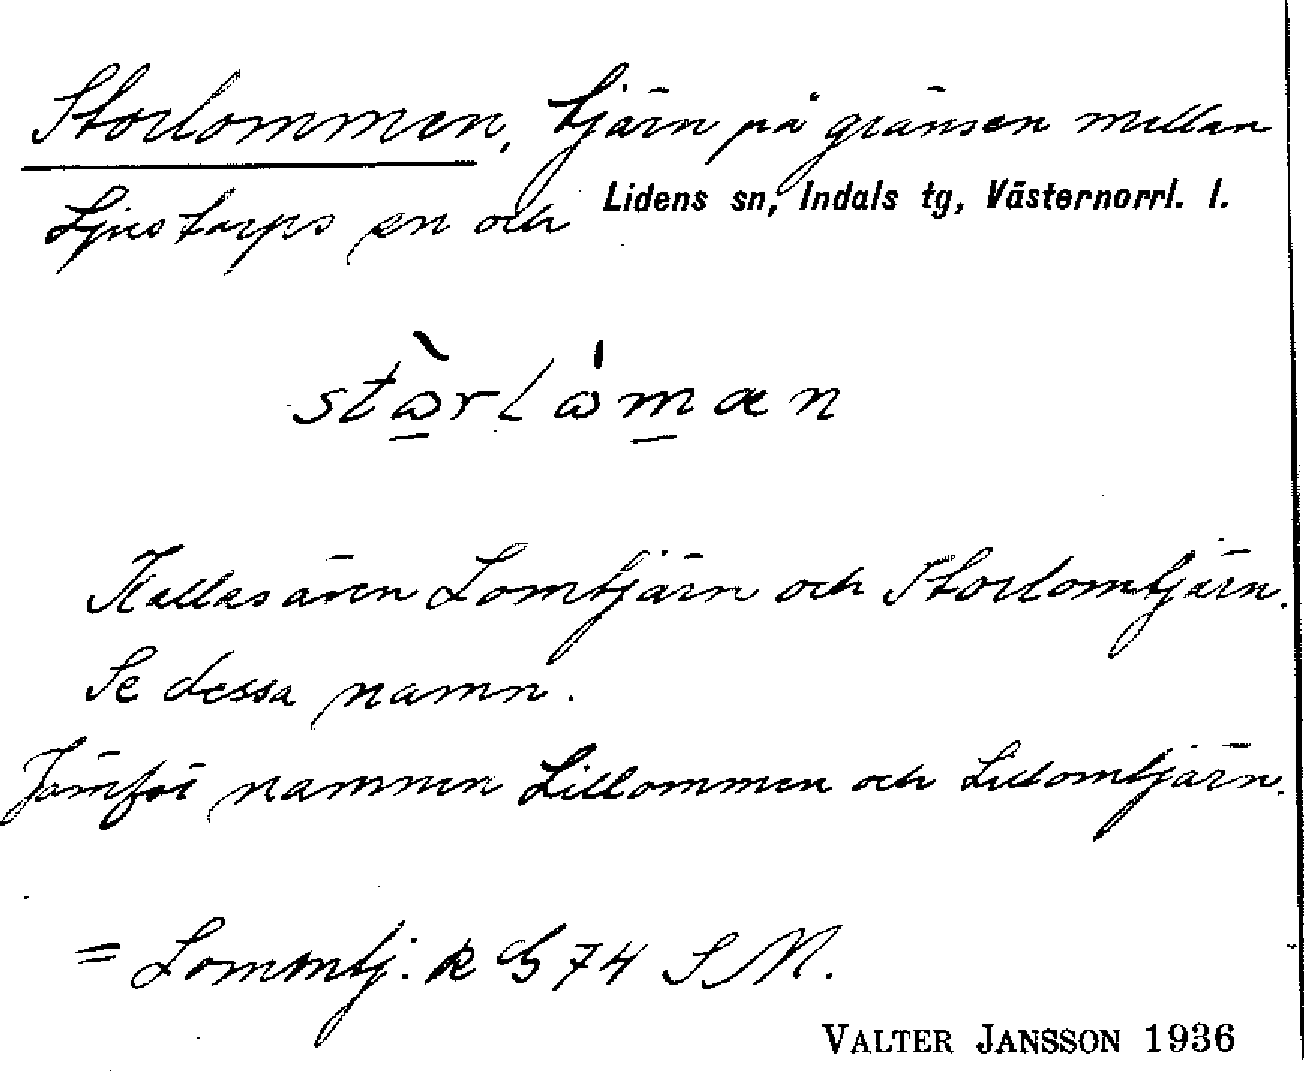 Storlommen, tjärn på gränsen mellan
Ljustorps sn och Lidens sn, Indals tg, Västernorrl. l.
Kallas även Lomtjärn och Storlomtjärn.
Se dessa namn.
Jämför namnen Lillommen och Lillomtjärn.
= Lommtj. k G 74 SM.
VALTER JANSSON 1936